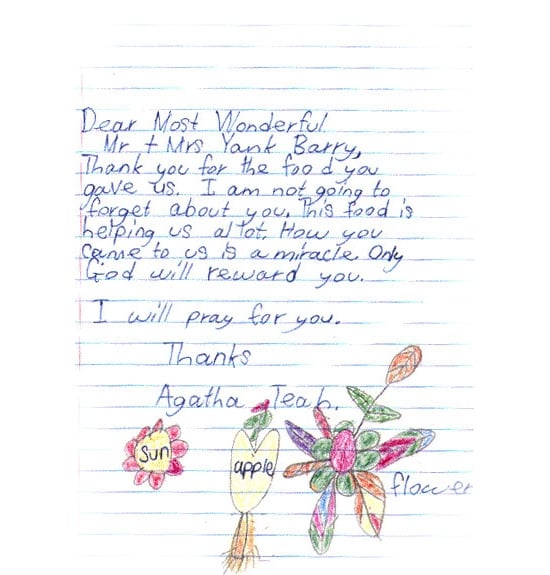 Dear Most Wonderful
Mr + Mrs Yank Barry,
Thank you for the food you
gave us. I am not going to
forget about you. This food is
helping us alot. How you
came to us is a miracle. Only
God will reward you.
I will pray for you.
Thanks
Agatha Teah.
sun
apple
flower